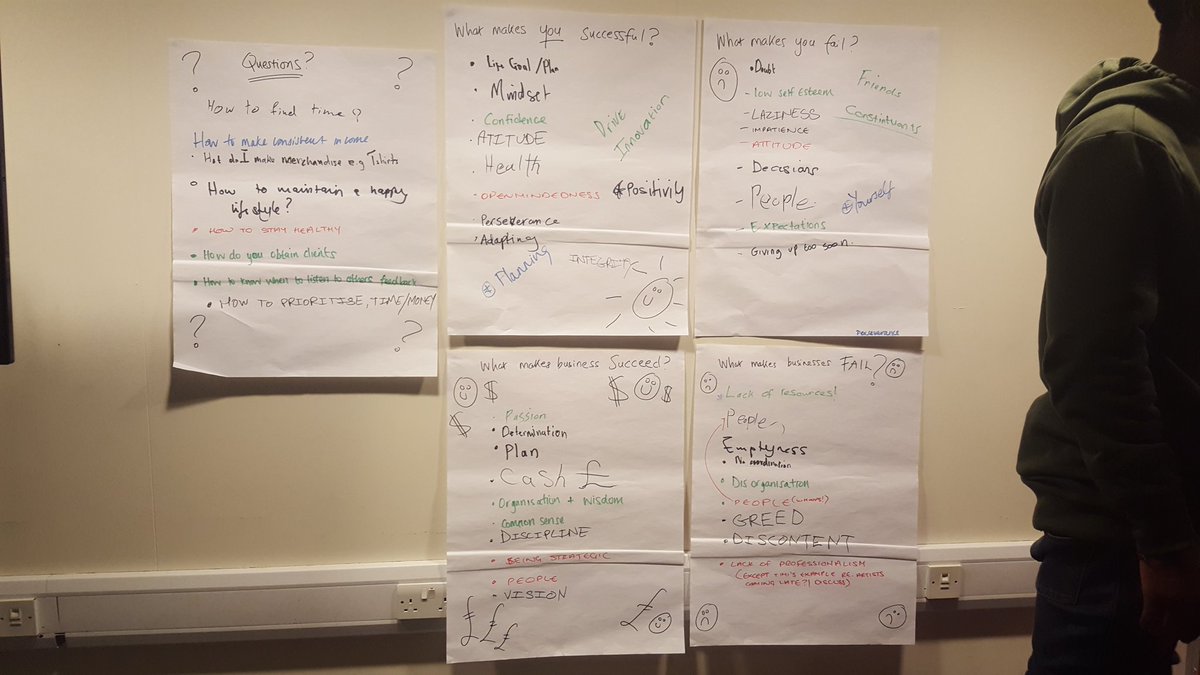 ? Questions? ?
How to find time?
How to make consistent income
• Hot do I make merchandise e.g Tshirts
How to maintain a happy
lifestyle?
• HOW TO STAY HEALTHY
• How do you obtain clients
• How to know when to listen to others feedback
• HOW TO PRIORITISE, TIME/MONEY
? ?
What makes you Successful?
• Life Goal/Plan
• Mindset
• Confidence
• ATITUDE
• Health
- OPENMINDEDNESS
• Perseverance
• Adapting
Drive
Innovation
Positivity
Planning
INTEGRITY
What makes you fail?
• Doubt
- low self Esteem
- LAZINESS
- IMPATIENCE
- ATTITUDE
- Decisions
- People
- Expectations
- Giving up too soon.
Friends
Constintuants
Yourself
What makes business Succeed?
$ $ $
$
• Passion
• Determination
• Plan
• Cash £
• Organisation + Wisdom
• Common sense
• DISCIPLINE
• BEING STRATEGIC
• PEOPLE
- VISION
£ £ £ £
What makes businesses FAIL?
Lack of resources!
People
Emptyness
• No coordination
• Disorganisation
• PEOPLE
• GREED
• DISCONTENT
• LACK OF PROFESSIONALISM
(EXCEPT TIMI'S EXAMPLE RE. ARTISTS
COMING LATE?! DISCUSS)